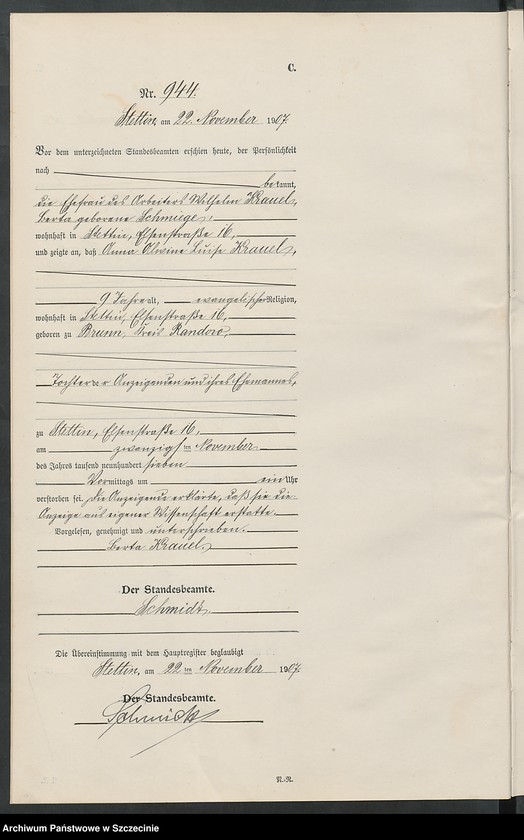 C.
Nr. 944.
Stettin, am 22. November 1907.
Vor dem unterzeichneten Standesbeamten erschien heute, der Persönlichkeit
nach
bekannt,
die Ehefrau des Arbeiters Wilhelm Krauel,
Berta geborene Schmiege,
wohnhaft in Stettin, Elsenstraße 16,
und zeigte an, daß Anna Alwine Luise Krauel,
9 Jahre alt, evangelischer Religion,
wohnhaft in Stettin, Elsenstraße 16,
geboren zu Brunn, Kreis Randow,
Tochter der Anzeigenden und ihres Ehemannes,
zu Stettin, Elsenstraße 16,
am zwanzigsten November
des Jahres tausend neunhundert sieben
Vormittags um ein Uhr
verstorben sei. Die Anzeigende erklärte, daß sie die
Anzeige aus eigener Wissenschaft erstatte.
Vorgelesen, genehmigt und unterschrieben.
Berta Krauel
Der Standesbeamte.
Schmidt.
Die Übereinstimmung mit dem Hauptregister beglaubigt
Stettin, am 22 ten November 1907.
Der Standesbeamte.
Schmidt
N.-R.
Archiwum Państwowe w Szczecinie